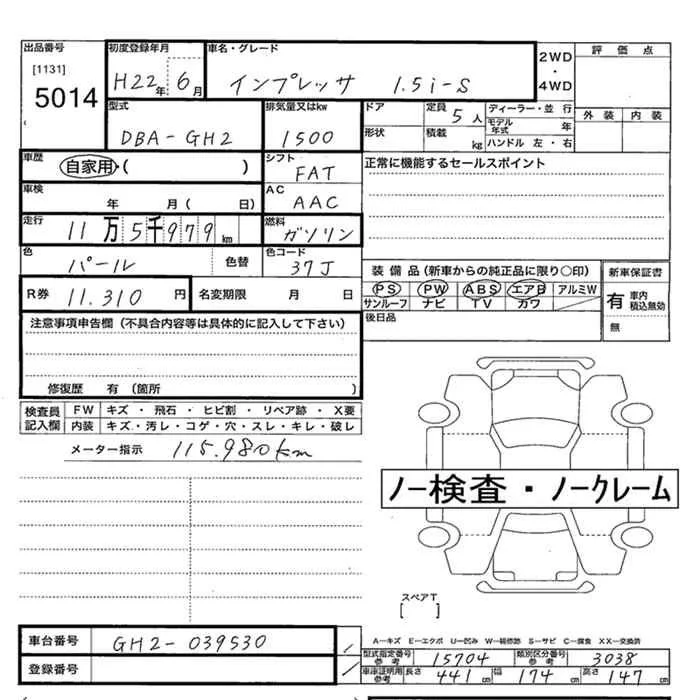 出品番号 初度登録年月 車名・グレード 評価点
[1131] 5014 H22年 6月 インプレッサ 1.5i-S 2WD・4WD
型式 排気量又はkw ドア 定員 5人 ディーラー・並行 外装 内装
DBA-GH2 1500 形状 積載 kg モデル年式 年
ハンドル 左・右
車歴 自家用・( ) シフト FAT 正常に機能するセールスポイント
車検 年 月( 日) AC AAC
走行 11万5千979km 燃料 ガソリン
色 パール 色替 色コード 37J 装備品(新車からの純正品に限り○印) 新車保証書
R券 11.310円 名変期限 月 日 PS PW ABS エアB アルミW 有 車内 積込無効
サンルーフ ナビ TV カワ
注意事項申告欄(不具合内容等は具体的に記入して下さい) 後日品 無
修復歴 有 (箇所 )
検査員記入欄 FW キズ・飛石・ヒビ割・リペア跡・X要
内装 キズ・汚レ・コゲ・穴・スレ・キレ・破レ
メーター指示 115.980km
ノー検査・ノークレーム
スペアT
[ ]
車台番号 GH2-039530
A−キズ E−エクボ U−凹み W−補修跡 S−サビ C−腐食 XX−交換済
型式指定番号 参考 15704 類別区分番号 参考 3038
登録番号 車庫証明用 参考 長さ 441cm 幅 174cm 高さ 147cm